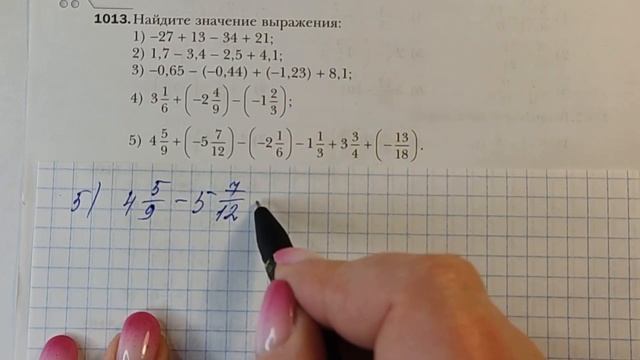 1013. Найдите значение выражения:
1) −27 + 13 − 34 + 21;
2) 1,7 − 3,4 − 2,5 + 4,1;
3) −0,65 − (−0,44) + (−1,23) + 8,1;
4) 3 1/6 + (−2 4/9) − (−1 2/3);
5) 4 5/9 + (−5 7/12) − (−2 1/6) − 1 1/3 + 3 3/4 + (−13/18).
5) 4 5/9 − 5 7/12